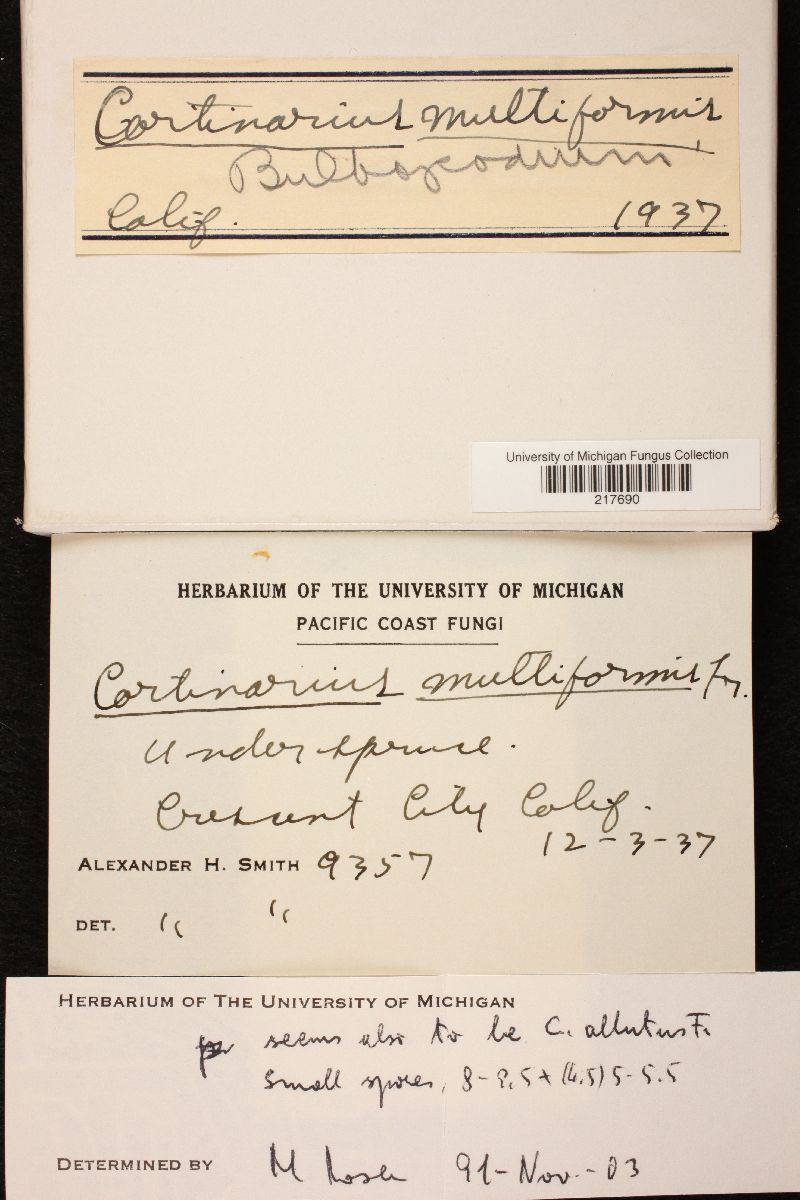 Cortinarius multiformis
Bulbopodium
Calif. 1937
University of Michigan Fungus Collection
217690
HERBARIUM OF THE UNIVERSITY OF MICHIGAN
PACIFIC COAST FUNGI
Cortinarius multiformis Fr.
Under spruce.
Crescent City Calif.
12-3-37
ALEXANDER H. SMITH 9357
DET. " "
HERBARIUM OF THE UNIVERSITY OF MICHIGAN
seems also to be C. allutus Fr.
Small spores, 8-8,5 x (4.5) 5-5.5
DETERMINED BY M Moser 91-Nov.-03